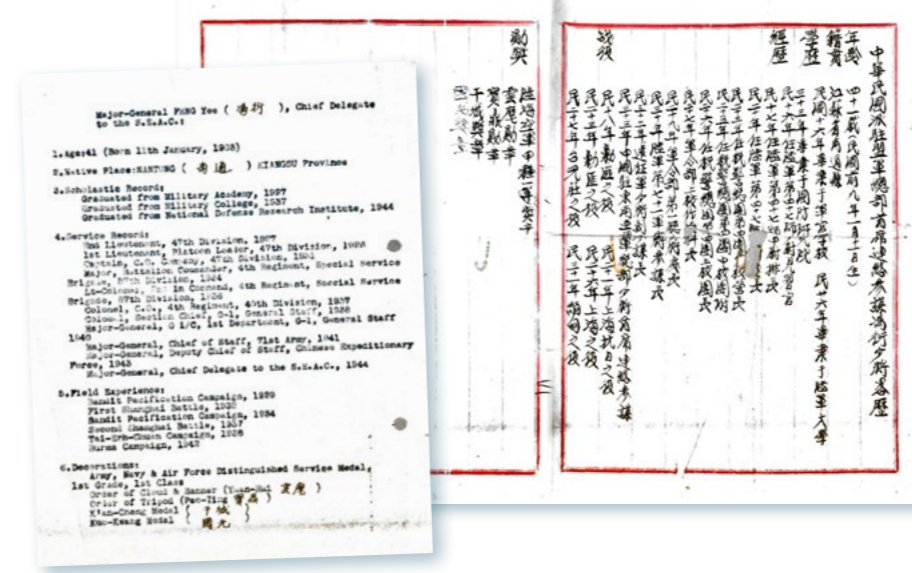 Major-General FENG Yee ( 馮衍 ), Chief Delegate
to the S.E.A.C.:
1.Age:41 (Born 11th January, 1903)
2.Native Place:NANTUNG ( 南通 ) KIANGSU Province
3.Scholastic Record:
Graduated from Military Academy, 1927
Graduated from Military College, 1937
Graduated from National Defense Research Institute, 1944
4.Service Record:
2nd Lieutenant, 47th Division, 1927
1st Lieutenant, Platoon Leader, 47th Division, 1928
Captain, C.O. Company, 47th Division, 1931
Major, Battalion Commander, 4th Regiment, Special Service
Brigade, 87th Division, 1934
Lt-Colonel, in Command, 4th Regiment, Special Service
Brigade, 87th Division, 1936
Colonel, C.O., 4th Regiment, 40th Division, 1937
Colonel, Section Chief, G-1, General Staff, 1938
Major-General, O I/C, 1st Department, G-1, General Staff
1940
Major-General, Chief of Staff, 71st Army, 1941
Major-General, Deputy Chief of Staff, Chinese Expeditionary
Force, 1943
Major-General, Chief Delegate to the S.E.A.C., 1944
5.Field Experience:
Bandit Pacification Campaign, 1929
First Shanghai Battle, 1932
Bandit Pacification Campaign, 1934
Second Shanghai Battle, 1937
Tai-Erh-Chuan Campaign, 1938
Burma Campaign, 1942
6.Decorations:
Army, Navy & Air Force Distinguished Service Medal,
1st Grade, 1st Class
Order of Cloud & Banner (Yuan-Hui 雲麾 )
Order of Tripod (Pao-Ting 寶鼎 )
K'an-Cheng Medal ( 干城 )
Kuo-Kwang Medal ( 國光 )
中華民國派駐盟軍總部首席連絡參謀馮衍少將略歷
年齡 四十一歲(民國前九年一月十一日生)
籍貫 江蘇省南通縣
學歷 民國十六年畢業于軍官學校 民廿六年畢業于陸軍大學
三十三年畢業于國防研究院
經歷 民十六年任陸軍第四七師少尉
民十七年任陸軍第四七師中尉排長
民二十年任陸軍第四七師
民二十三年任
民二十六年任
民二十九年軍令部第一廳
民三十年任陸軍第七十一軍少將參謀長
民三十二年遠征軍少將副參謀長
民三十三年中國駐東南亞盟軍總部少將首席連絡參謀
戰役 民十八年剿匪之役 民二十一年上海抗日之役
民二十三年剿匪之役 民二十六年上海之役
民二十七年台兒庄之役 民三十一年緬甸之役
勳獎 陸海空軍甲種一等獎章
雲麾勳章
寶鼎勳章
干城獎章